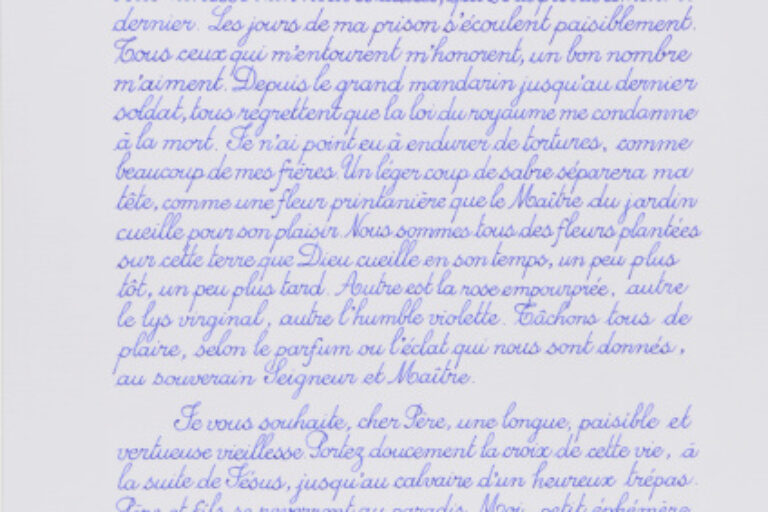 dernier. Les jours de ma prison s'écoulent paisiblement.
Tous ceux qui m'entourent m'honorent, un bon nombre
m'aiment. Depuis le grand mandarin jusqu'au dernier
soldat, tous regrettent que la loi du royaume me condamne
à la mort. Je n'ai point eu à endurer de tortures, comme
beaucoup de mes frères. Un léger coup de sabre séparera ma
tête, comme une fleur printanière que le Maître du jardin
cueille pour son plaisir. Nous sommes tous des fleurs plantées
sur cette terre que Dieu cueille en son temps, un peu plus
tôt, un peu plus tard. Autre est la rose empourprée, autre
le lys virginal, autre l'humble violette. Tâchons tous de
plaire, selon le parfum ou l'éclat qui nous sont donnés,
au souverain Seigneur et Maître.
Je vous souhaite, cher Père, une longue, paisible et
vertueuse vieillesse. Portez doucement la croix de cette vie, à
la suite de Jésus, jusqu'au calvaire d'un heureux trépas.
Père et fils se reverront au paradis. Moi, petit éphémère